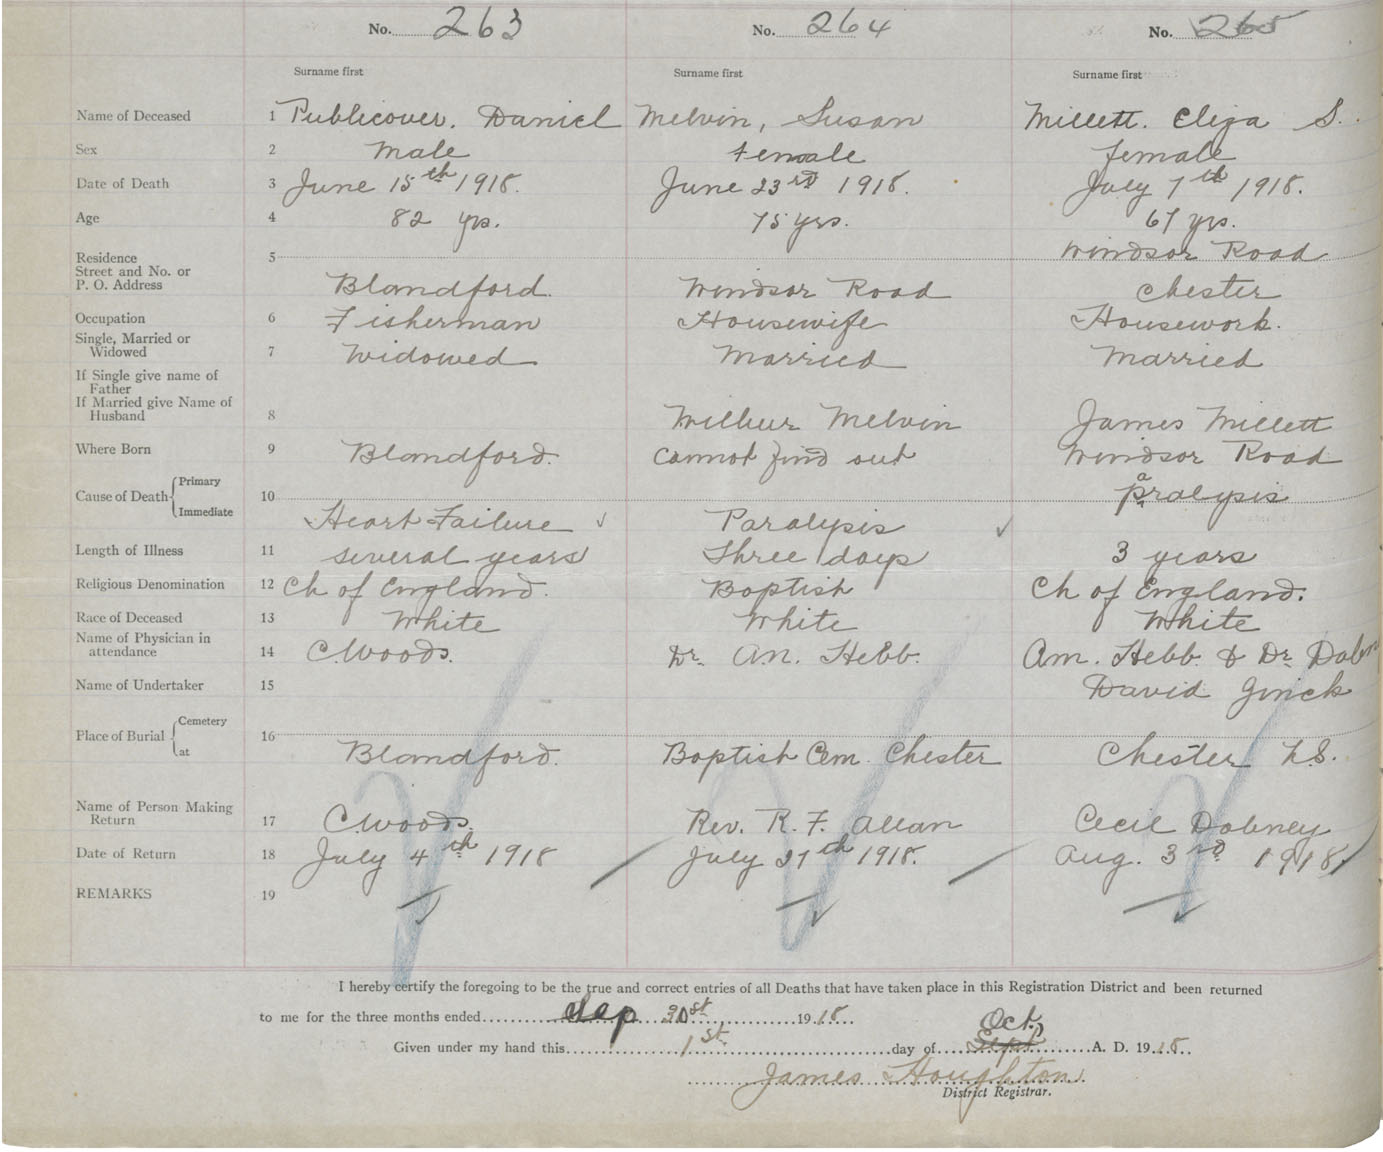 No. 263 No. 264 No. 265
Surname first Surname first Surname first
Name of Deceased 1 Publicover, Daniel Melvin, Susan Millett. Eliza S.
Sex 2 Male Female female
Date of Death 3 June 15th 1918. June 23rd 1918. July 7th 1918.
Age 4 82 yrs. 75 yrs. 67 yrs.
Residence 5 Windsor Road
Street and No. or
P. O. Address Blandford. Windsor Road Chester
Occupation 6 Fisherman Housewife Housework.
Single, Married or
Widowed 7 Widowed Married Married
If Single give name of
Father
If Married give Name of
Husband 8 Wilbur Melvin James Millett
Where Born 9 Blandford. Cannot find out Windsor Road
Cause of Death Primary 10 paralysis
Immediate Heart Failure Paralysis
Length of Illness 11 several years Three days 3 years
Religious Denomination 12 Ch of England. Baptist Ch of England.
Race of Deceased 13 White White White
Name of Physician in
attendance 14 C Woods. Dr. A.N. Hebb. Am. Hebb & Dr.
Name of Undertaker 15 David
Place of Burial Cemetery 16
at Blandford. Baptist Cem. Chester Chester N.S.
Name of Person Making
Return 17 C Woods. Rev. R. F. Allan Cecil Dabney
Date of Return 18 July 4th 1918 July 27th 1918. Aug. 3rd 1918
REMARKS 19
I hereby certify the foregoing to be the true and correct entries of all Deaths that have taken place in this Registration District and been returned
to me for the three months ended Sep 30st 1918
Oct.
Given under my hand this 1st day of Sept A. D. 1918
James Houghton
District Registrar.